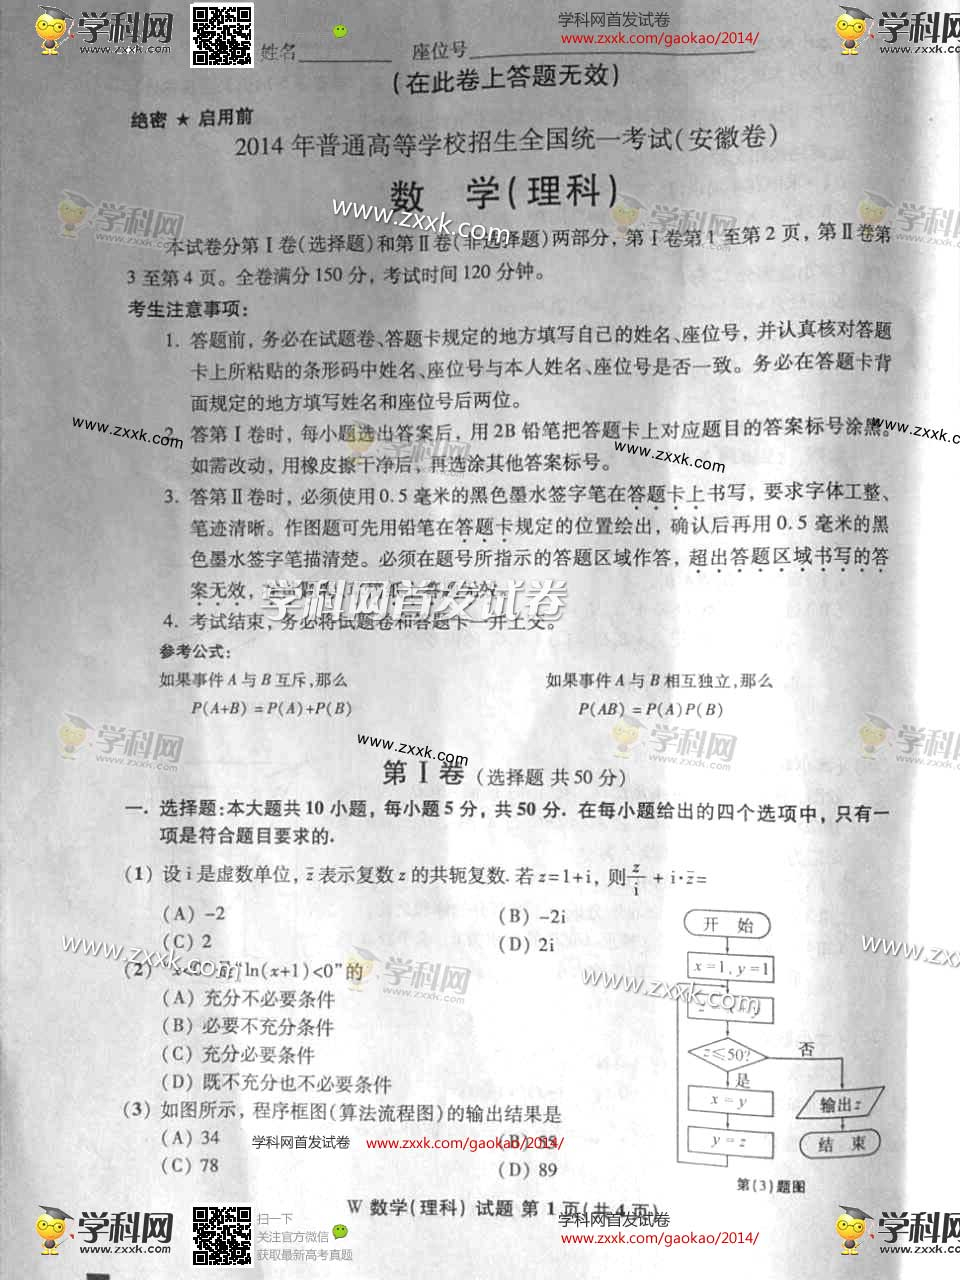 学科网
www.zxxk.com
姓名
座位号
学科网首发试卷
www.zxxk.com/gaokao/2014/
学科网
www.zxxk.com
(在此卷上答题无效)
绝密 ★ 启用前
2014 年普通高等学校招生全国统一考试(安徽卷)
数 学(理科)
学科网
www.zxxk.com
学科网
本试卷分第Ⅰ卷(选择题)和第Ⅱ卷(非选择题)两部分，第Ⅰ卷第 1 至第 2 页，第Ⅱ卷第
3 至第 4 页。全卷满分 150 分，考试时间 120 分钟。
考生注意事项：
1. 答题前，务必在试题卷、答题卡规定的地方填写自己的姓名、座位号，并认真核对答题
卡上所粘贴的条形码中姓名、座位号与本人姓名、座位号是否一致。务必在答题卡背
面规定的地方填写姓名和座位号后两位。
www.zxxk.com
学科网
www.zxxk.com
www.zxxk.com
2. 答第Ⅰ卷时，每小题选出答案后，用 2B 铅笔把答题卡上对应题目的答案标号涂黑。
如需改动，用橡皮擦干净后，再选涂其他答案标号。
3. 答第Ⅱ卷时，必须使用 0.5 毫米的黑色墨水签字笔在答题卡上书写，要求字体工整、
笔迹清晰。作图题可先用铅笔在答题卡规定的位置绘出，确认后再用 0.5 毫米的黑
色墨水签字笔描清楚。必须在题号所指示的答题区域作答，超出答题区域书写的答
案无效，
学科网首发试卷
4. 考试结束，务必将试题卷和答题卡一并上交。
参考公式：
如果事件 A 与 B 互斥，那么
如果事件 A 与 B 相互独立，那么
P(A+B) = P(A)+P(B)
P(AB) = P(A)P(B)
学科网
www.zxxk.com
学科网
学科网
第Ⅰ卷 (选择题 共 50 分)
一. 选择题：本大题共 10 小题，每小题 5 分，共 50 分. 在每小题给出的四个选项中，只有一
项是符合题目要求的.
(1) 设 i 是虚数单位，z̄ 表示复数 z 的共轭复数. 若 z=1+i，则 z/i + i·z̄=
(A) -2
(B) -2i
(C) 2
(D) 2i
www.zxxk.com
学科网
www.zxxk.com
www.zxxk.com
(2) “x<0”是“ln(x+1)<0”的
(A) 充分不必要条件
(B) 必要不充分条件
(C) 充分必要条件
(D) 既不充分也不必要条件
(3) 如图所示，程序框图(算法流程图)的输出结果是
(A) 34
(B) 55
(C) 78
(D) 89
开 始
x=1, y=1
z=x+y
z≤50?
否
是
x = y
y = z
输出z
结 束
第(3)题图
学科网首发试卷
www.zxxk.com/gaokao/2014/
W 数学(理科) 试题 第 1 页(共 4 页)
学科网
www.zxxk.com
扫一下
关注官方微信
获取最新高考真题
学科网首发试卷
www.zxxk.com/gaokao/2014/
学科网
www.zxxk.com